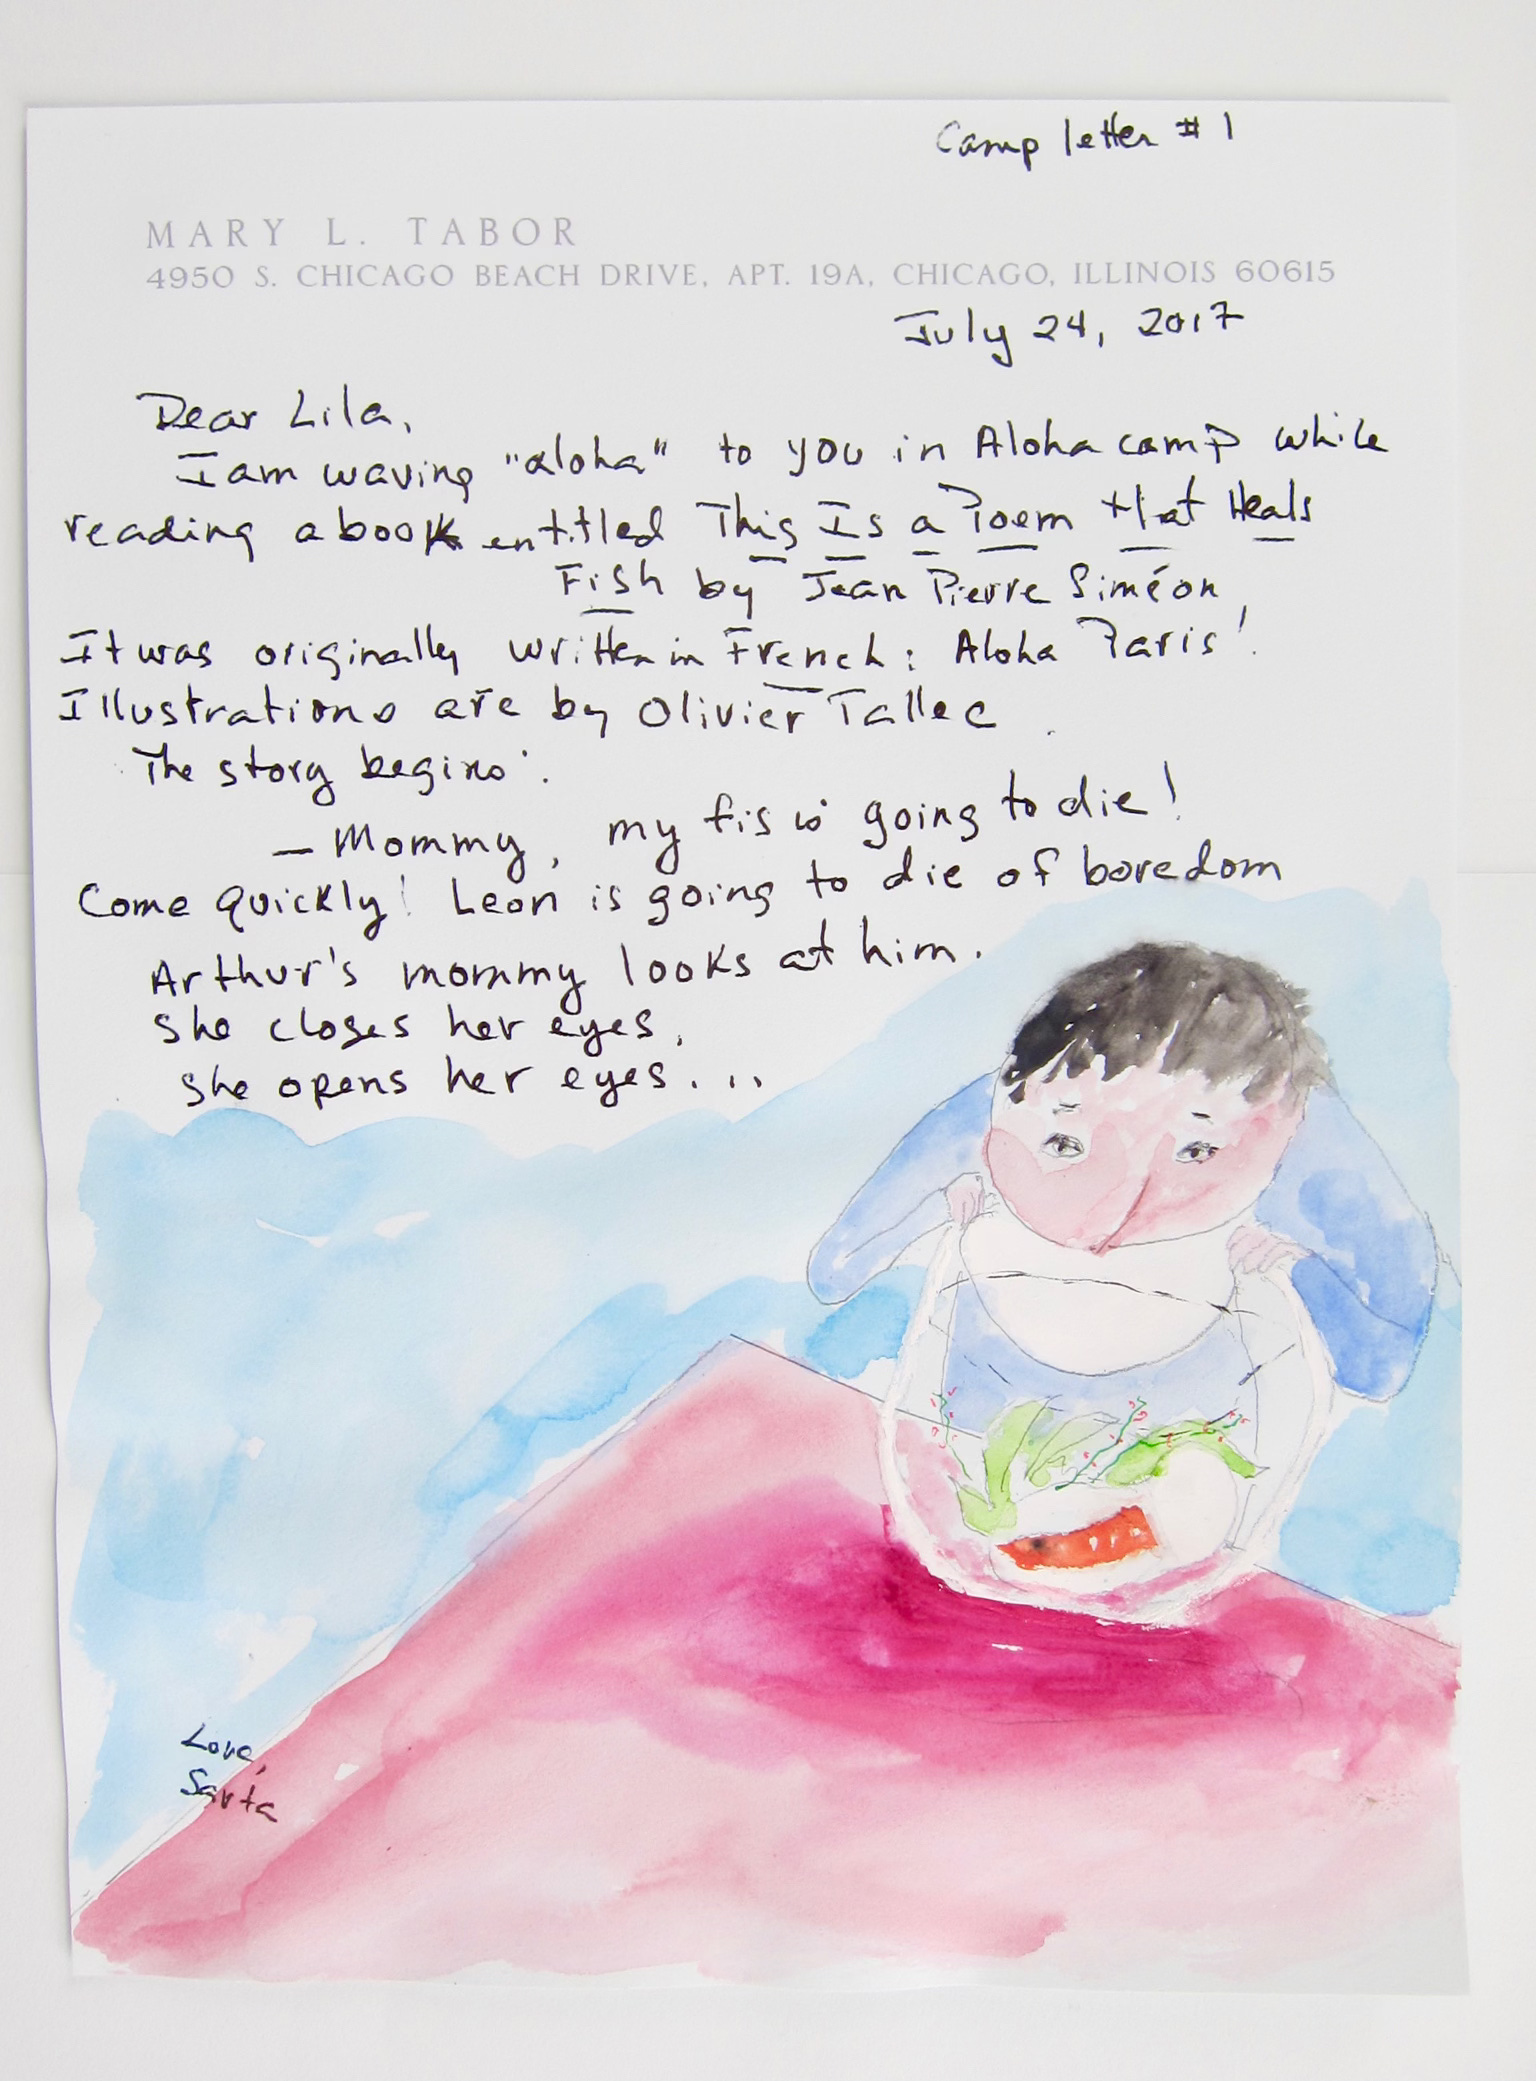 Camp letter #1
MARY L. TABOR
4950 S. CHICAGO BEACH DRIVE, APT. 19A, CHICAGO, ILLINOIS 60615
July 24, 2017
Dear Lila,
I am waving "aloha" to you in Aloha camp while
reading a book entitled This Is a Poem that Heals
Fish by Jean Pierre Siméon,
It was originally written in French: Aloha Paris!
Illustrations are by Olivier Tallec.
The story begins:
— Mommy, my fis is going to die!
Come quickly! Leon is going to die of boredom
Arthur's mommy looks at him.
She closes her eyes,
She opens her eyes...
Love,
Santa